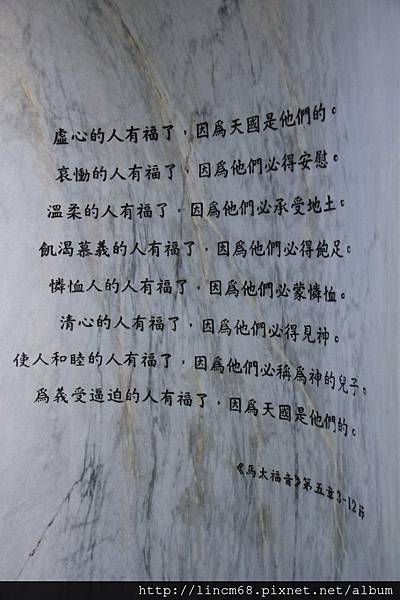 虛心的人有福了，因為天國是他們的。
哀慟的人有福了，因為他們必得安慰。
溫柔的人有福了，因為他們必承受地土。
飢渴慕義的人有福了，因為他們必得飽足。
憐恤人的人有福了，因為他們必蒙憐恤。
清心的人有福了，因為他們必得見神。
使人和睦的人有福了，因為他們必稱為神的兒子。
為義受逼迫的人有福了，因為天國是他們的。
《馬太福音》第五章3-12節
http://lincm68.pixnet.net/album